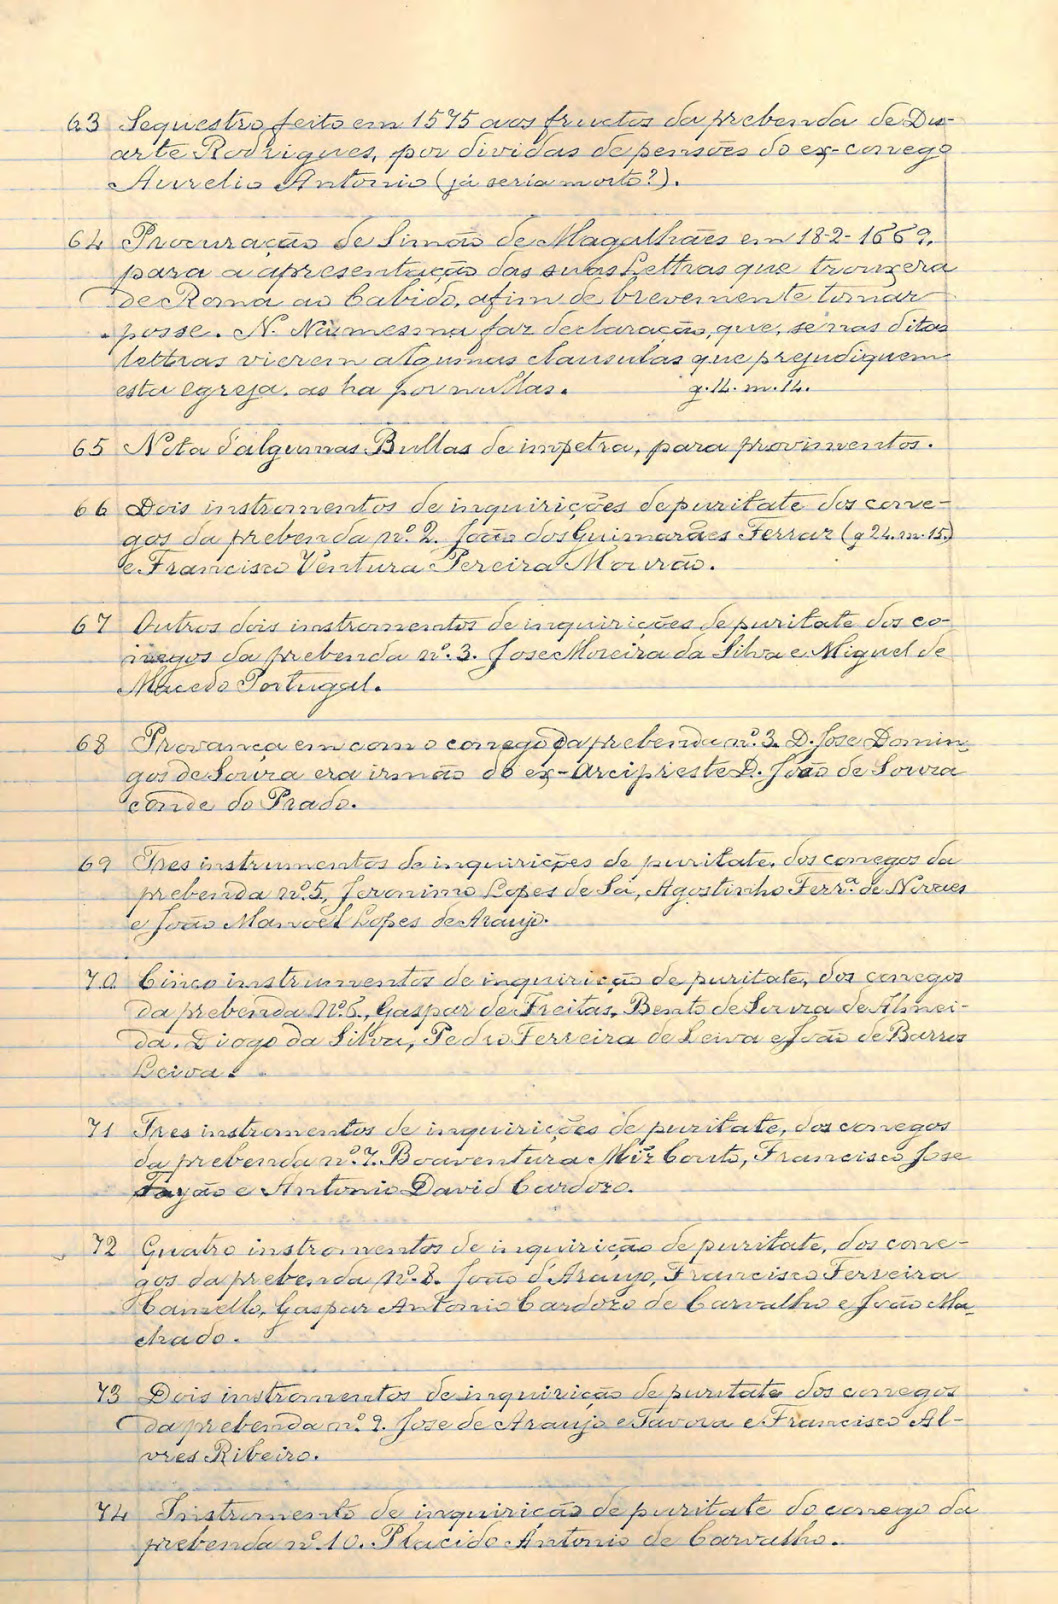 63 Sequestro feito em 1575 aos fructos da prebenda de Du-
arte Rodrigues, por dividas de pensões do ex-conego
Aurelio Antonio (já seria morto?).
64 Procuração de Simão de Magalhães em 18-2-1669,
para a apresentação das suas Lettras que trouxera
de Roma ao Cabido, afim de brevemente tomar
posse. N. Na mesma faz declaração, que, se nas ditas
lettras vierem algumas clausulas que prejudiquem
esta egreja, as ha por nullas. g. 14. m. 14.
65 Nota d'algumas Bullas de impetra, para provimentos.
66 Dois instromentos de inquirições de puritate dos cone-
gos da prebenda nº 2. João dos Guimarães Ferraz (g 24. m. 15.)
e Francisco Ventura Pereira Mourão.
67 Outros dois instromentos de inquirições de puritate dos co-
negos da prebenda nº. 3. Jose Moreira da Silva e Miguel de
Macedo Portugal.
68 Provança em como o conego da prebenda nº. 3. D. Jose Domin-
gos de Souza era irmão do ex-Arcipreste D. João de Souza
conde do Prado.
69 Tres instrumentos de inquirições de puritate, dos conegos da
prebenda nº 5, Jeronimo Lopes de Sá, Agostinho Ferrª. de Novaes
e João Manoel Lopes de Araujo.
70 Cinco instrumentos de inquirição de puritate, dos conegos
da prebenda Nº 6., Gaspar de Freitas, Bento de Souza de Almei-
da. Diogo da Silva, Pedro Ferreira de Leiva e João de Barros
Leiva.
71 Tres instromentos de inquirições de puritate, dos conegos
da prebenda nº. 7. Boaventura Miz Couto, Francisco Jose
e Antonio David Cardozo.
72 Quatro instromentos de inquirição de puritate, dos cone-
gos da prebenda nº. 8. João d'Araujo, Francisco Ferreira
Camello, Gaspar Antonio Cardozo de Carvalho e João Ma-
chado.
73 Dois instromentos de inquirição de puritate dos conegos
da prebenda nº. 9. Jose de Araujo e Tavora e Francisco Al-
vres Ribeiro.
74 Instromento de inquirição de puritate do conego da
prebenda nº. 10. Placido Antonio de Carvalho.